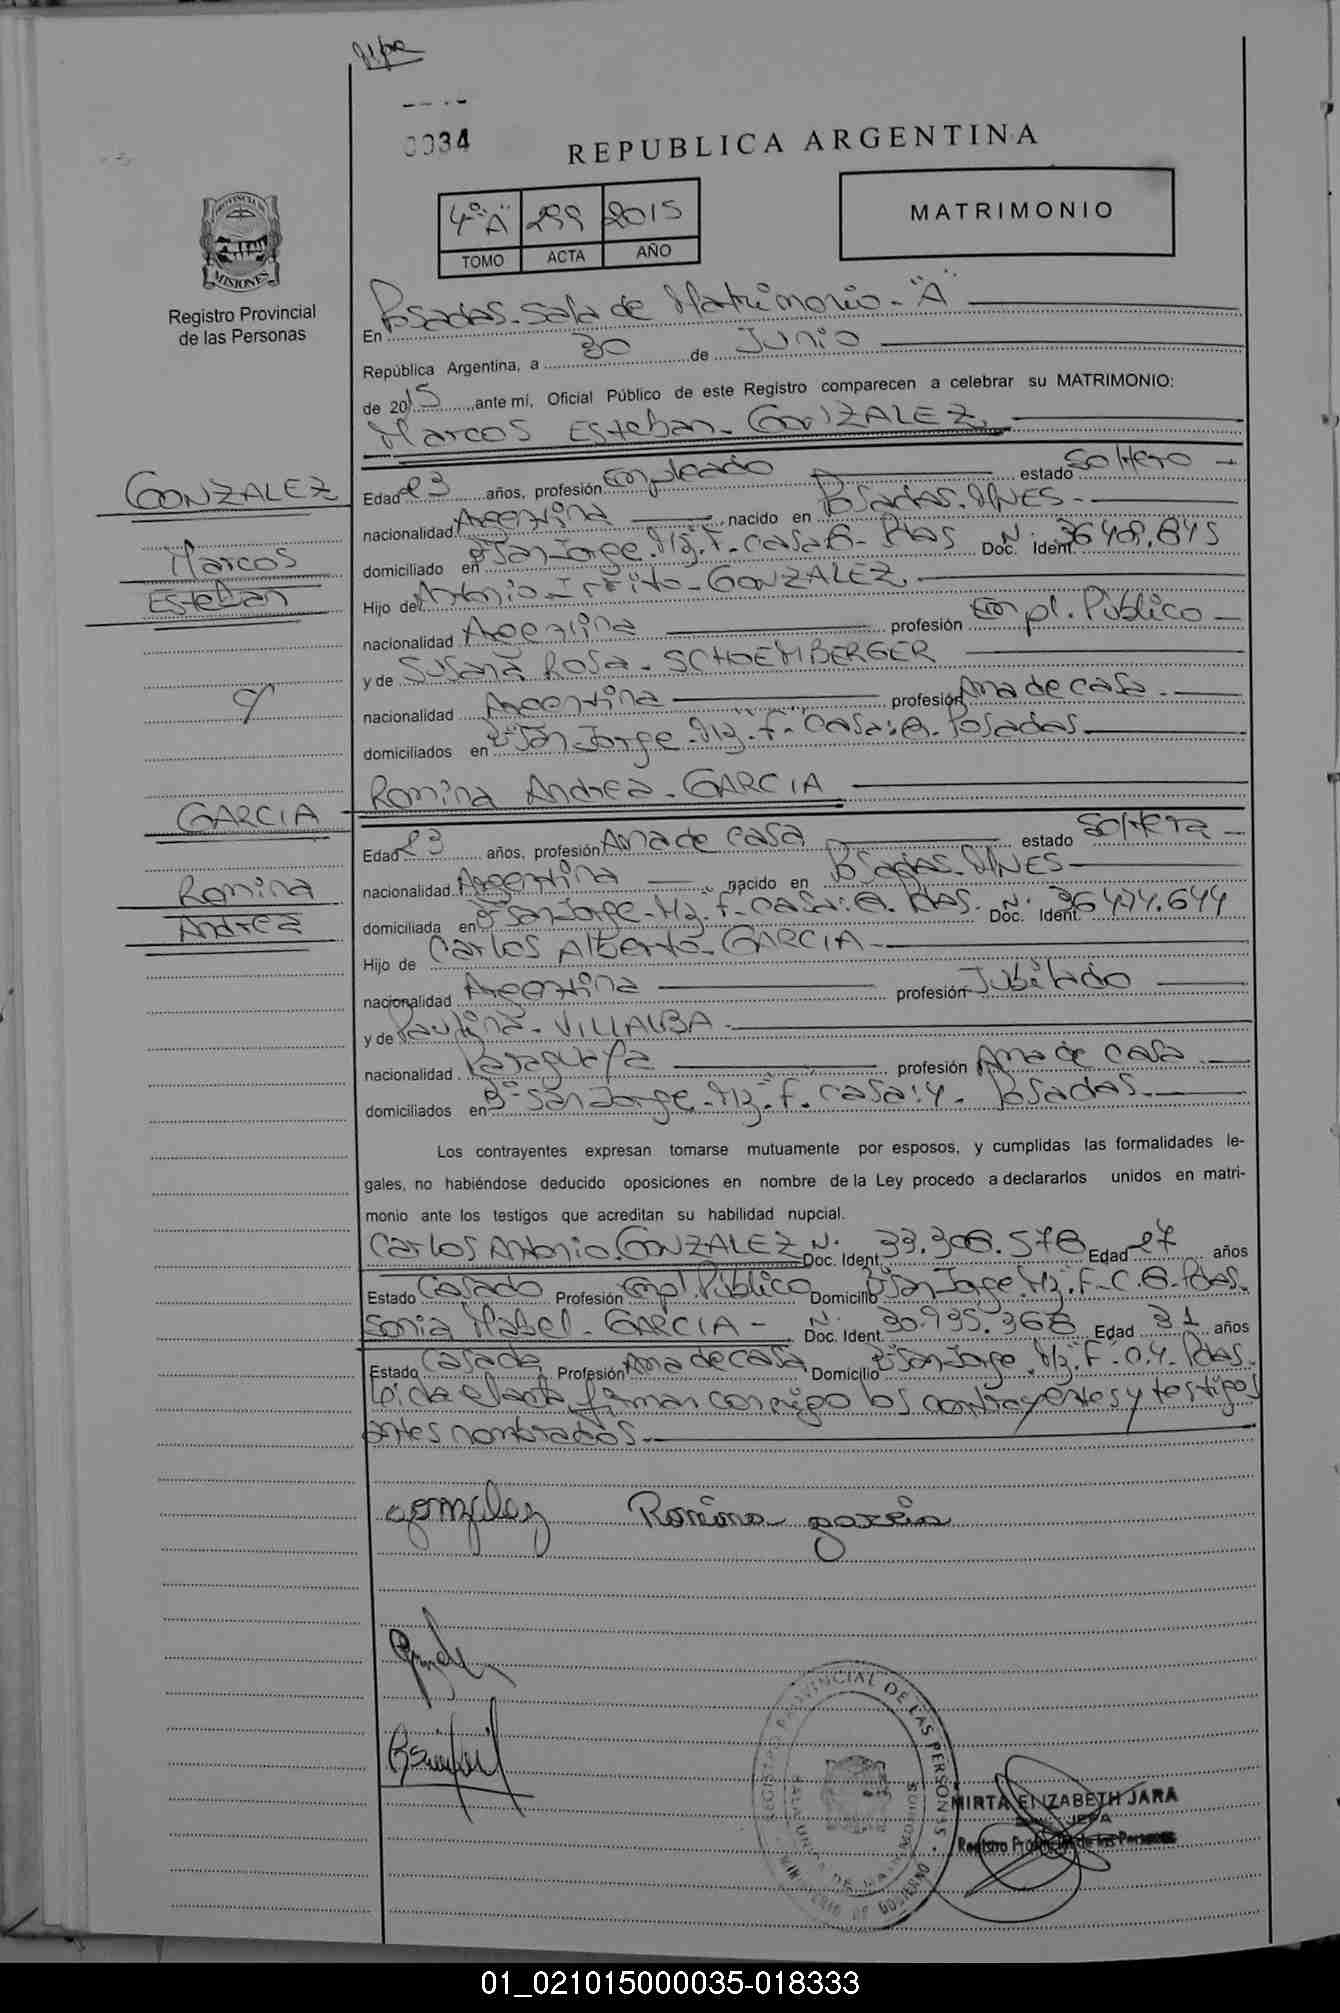 0034
REPUBLICA ARGENTINA
4º "A" 299 2015
TOMO ACTA AÑO
MATRIMONIO
PROVINCIA DE MISIONES
Registro Provincial
de las Personas
En Posadas - Sala de Matrimonio - "A"
República Argentina, a 30 de Junio
de 2015 ante mí, Oficial Público de este Registro comparecen a celebrar su MATRIMONIO:
Marcos Esteban - GONZALEZ
GONZALEZ
Marcos
Esteban
y
GARCIA
Romina
Andrea
Edad 23 años, profesión Empleado estado Soltero
nacionalidad Argentina nacido en Posadas. MNES.
domiciliado en Bº San Jorge. Mz. F. Casa Pdas Doc. Ident. Nº
Hijo de Antonio GONZALEZ
nacionalidad Argentina profesión Empl. Público
y de Susana Rosa - SCHOEMBERGER
nacionalidad Argentina profesión Ama de casa.
domiciliados en Bº San Jorge. Mz. "F". Casa: Posadas
Romina Andrea - GARCIA
Edad 23 años, profesión Ama de casa estado Soltera
nacionalidad Argentina nacido en Posadas. MNES
domiciliada en Bº San Jorge. Mz. F. Casa: Pdas. Doc. Ident. Nº
Hijo de Carlos Alberto - GARCIA
nacionalidad Argentina profesión Jubilado
y de Paulina - VILLALBA
nacionalidad Paraguaya profesión Ama de casa
domiciliados en Bº San Jorge. Mz. F. Casa: 4. Posadas
Los contrayentes expresan tomarse mutuamente por esposos, y cumplidas las formalidades le-
gales, no habiéndose deducido oposiciones en nombre de la Ley procedo a declararlos unidos en matri-
monio ante los testigos que acreditan su habilidad nupcial.
Carlos Antonio. GONZALEZ Doc. Ident. Nº Edad 27 años
Estado Casado Profesión Empl. Público Domicilio Bº San Jorge. Mz. F. C. Pdas.
Sonia Mabel - GARCIA - Doc. Ident. Nº 30.935.368 Edad 31 años
Estado Casada Profesión Ama de casa Domicilio Bº San Jorge. Mz. F. C. 4. Pdas.
Leída el acta, firman conmigo los contrayentes y testigos
antes nombrados.
Gonzalez Romina Garcia
REGISTRO PROVINCIAL DE LAS PERSONAS
MINISTERIO DE GOBIERNO
MIRTA ELIZABETH JARA
JEFA
Registro Provincial de las Personas
01_021015000035-018333